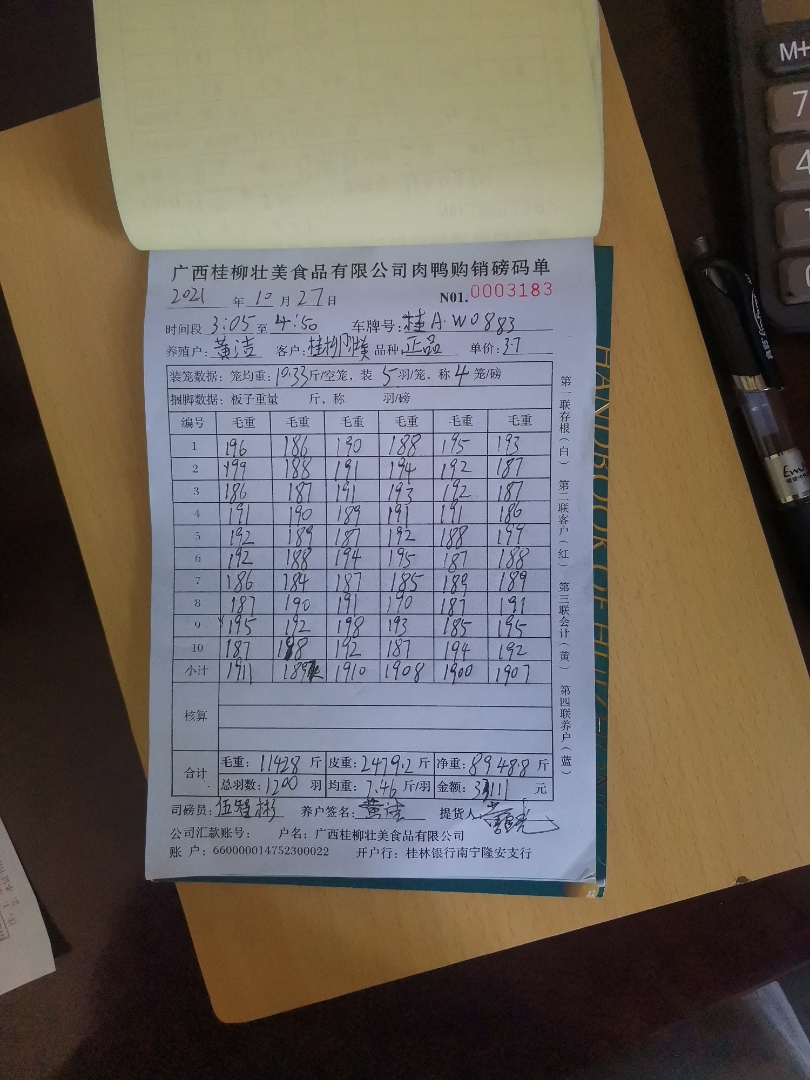 广西桂柳壮美食品有限公司肉鸭购销磅码单
2021 年 10 月 27 日 N01.0003183
时间段 3:05 至 4:50 车牌号: 桂A·W0883
养殖户: 黄洁 客户: 桂柳 品种 正品 单价: 3.7
装笼数据: 笼均重: 10.33 斤/空笼, 装 5 羽/笼, 称 4 笼/磅
捆脚数据: 板子重量 斤, 称 羽/磅
编号 毛重 毛重 毛重 毛重 毛重 毛重
1 196 186 190 188 195 193
2 199 188 191 194 192 187
3 186 187 191 193 192 187
4 191 190 189 191 191 186
5 192 189 187 192 188 199
6 192 188 194 195 187 188
7 186 184 187 185 189 189
8 187 190 191 190 187 191
9 195 192 198 193 185 195
10 187 188 192 187 194 192
小计 1911 1892 1910 1908 1900 1907
核算
合计 毛重: 11428 斤 皮重: 2479.2 斤 净重: 8948.8 斤
总羽数: 1200 羽 均重: 7.46 斤/羽 金额: 33111 元
司磅员: 养户签名: 黄洁 提货人
公司汇款账号: 户名: 广西桂柳壮美食品有限公司
账 户: 660000014752300022 开户行: 桂林银行南宁隆安支行
第一联存根(白) 第二联客户(红) 第三联会计(黄) 第四联养户(蓝)
HANDBOOK OF
M+
7
4